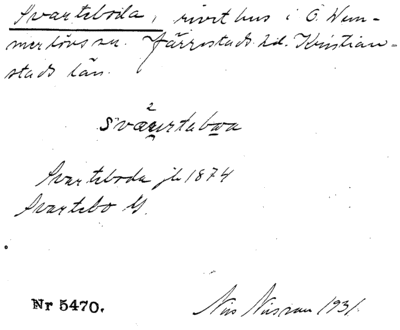 Svarteboda, rivet hus i Ö. Vem-
merlövs sn. Järrestads hd. Kristian-
stads län.
2
svärtabwa
Svarteboda jb 1874
Svartebo
Nr 5470.
Nils Nilsson 1931.